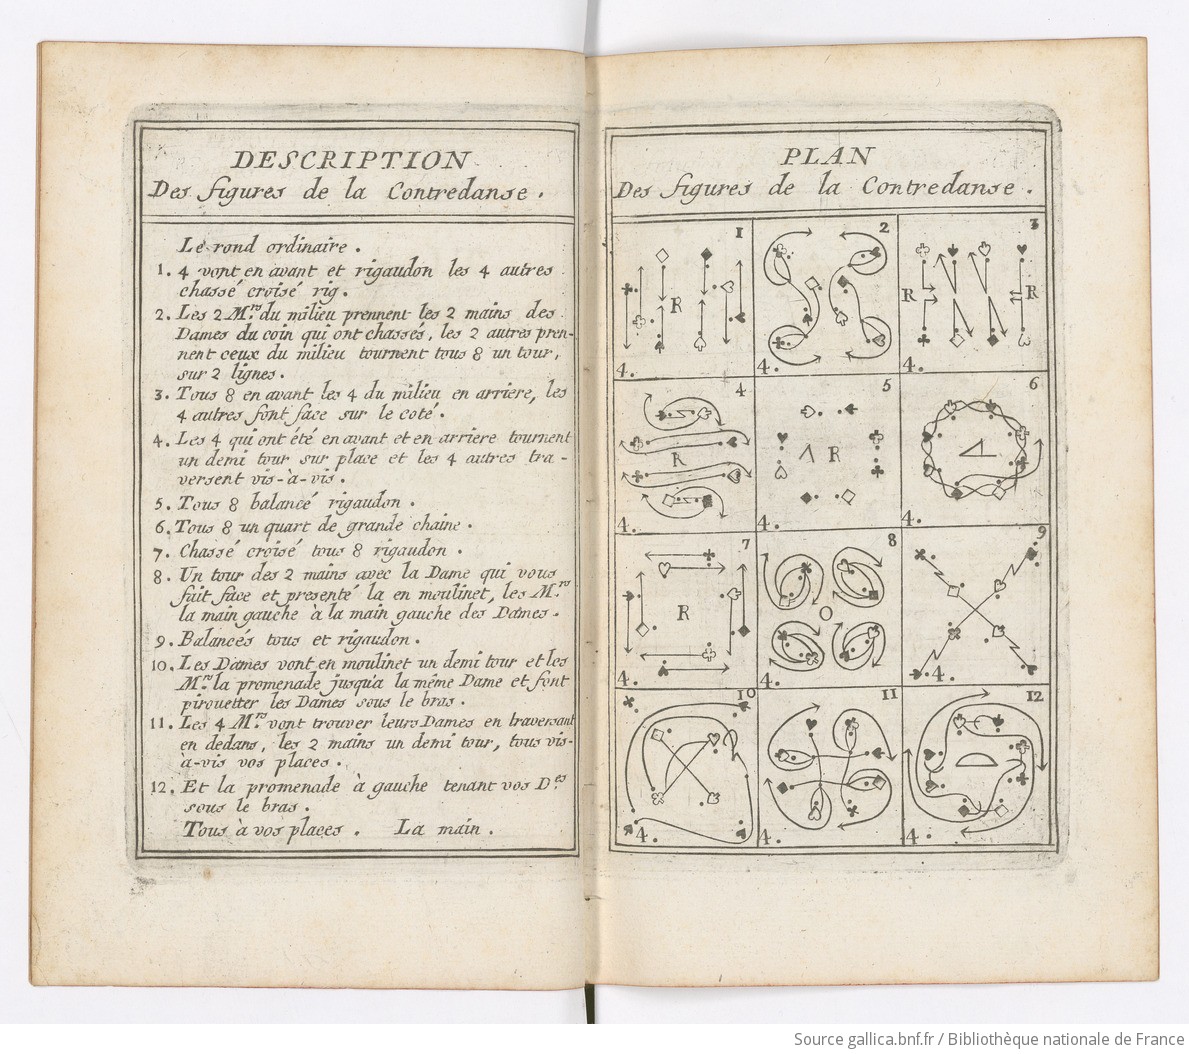 DESCRIPTION
Des figures de la Contredanse.
Le rond ordinaire.
1. 4 vont en avant et rigaudon les 4 autres
chassé croisé rig.
2. Les 2 Mrs du milieu prennent les 2 mains des
Dames du coin qui ont chassés, les 2 autres pren-
nent ceux du milieu tournent tous 8 un tour,
sur 2 lignes.
3. Tous 8 en avant les 4 du milieu en arriere, les
4 autres font face sur le coté.
4. Les 4 qui ont été en avant et en arriere tournent
un demi tour sur place et les 4 autres tra-
versent vis-à-vis.
5. Tous 8 balancé rigaudon.
6. Tous 8 un quart de grande chaine.
7. Chassé croisé tous 8 rigaudon.
8. Un tour des 2 mains avec la Dame qui vous
fait face et presenté la en moulinet, les Mrs
la main gauche à la main gauche des Dames.
9. Balancés tous et rigaudon.
10. Les Dames vont en moulinet un demi tour et les
Mrs la promenade jusqu'a la même Dame et font
pirouetter les Dames sous le bras.
11. Les 4 Mrs vont trouver leurs Dames en traversant
en dedans, les 2 mains un demi tour, tous vis-
à-vis vos places.
12. Et la promenade à gauche tenant vos Des
sous le bras.
Tous à vos places. La main.
PLAN
Des figures de la Contredanse.
1 2 3
R R R
4. 4.
4 5 6
R R
4. 4. 4.
7 8 9
R O
4. 4. 4.
10 11 12
4. 4. 4.
Source gallica.bnf.fr / Bibliothèque nationale de France